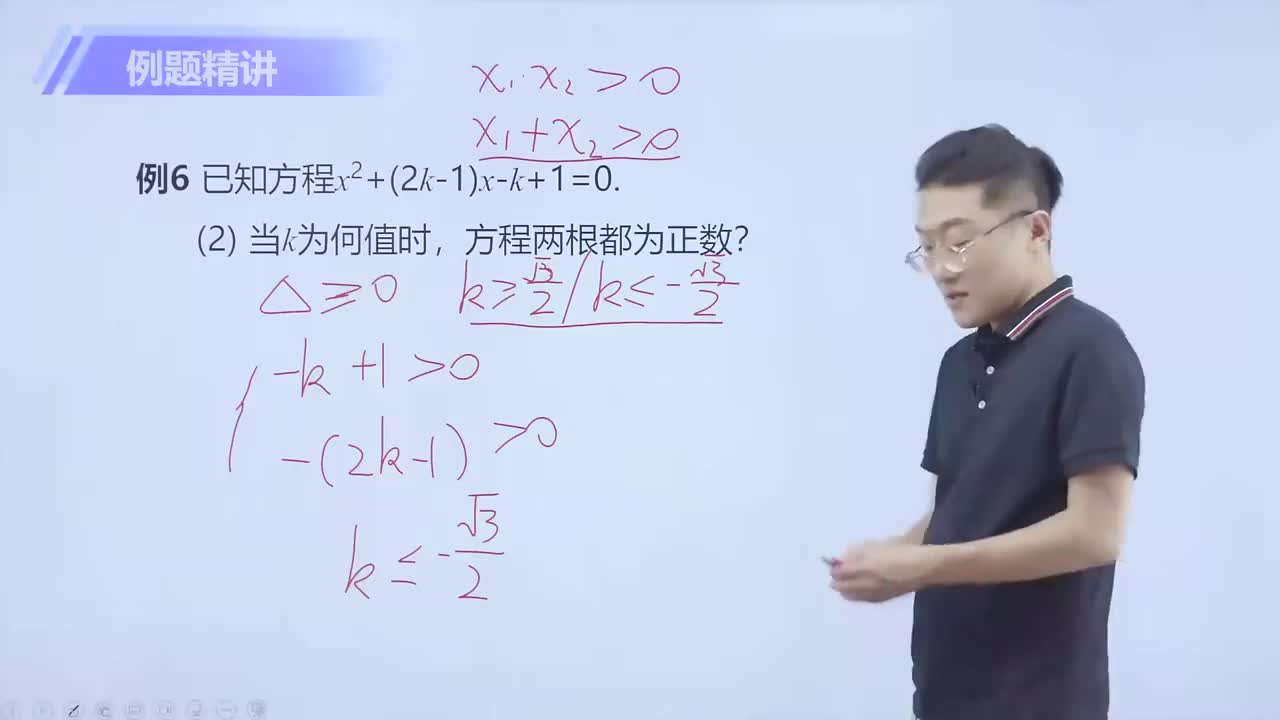 例题精讲
x₁·x₂>0
x₁+x₂>0
例6 已知方程x²+(2k-1)x-k+1=0.
(2) 当k为何值时，方程两根都为正数？
△≥0 k≥√3/2 / k≤-√3/2
-k+1>0
-(2k-1)>0
k≤-√3/2